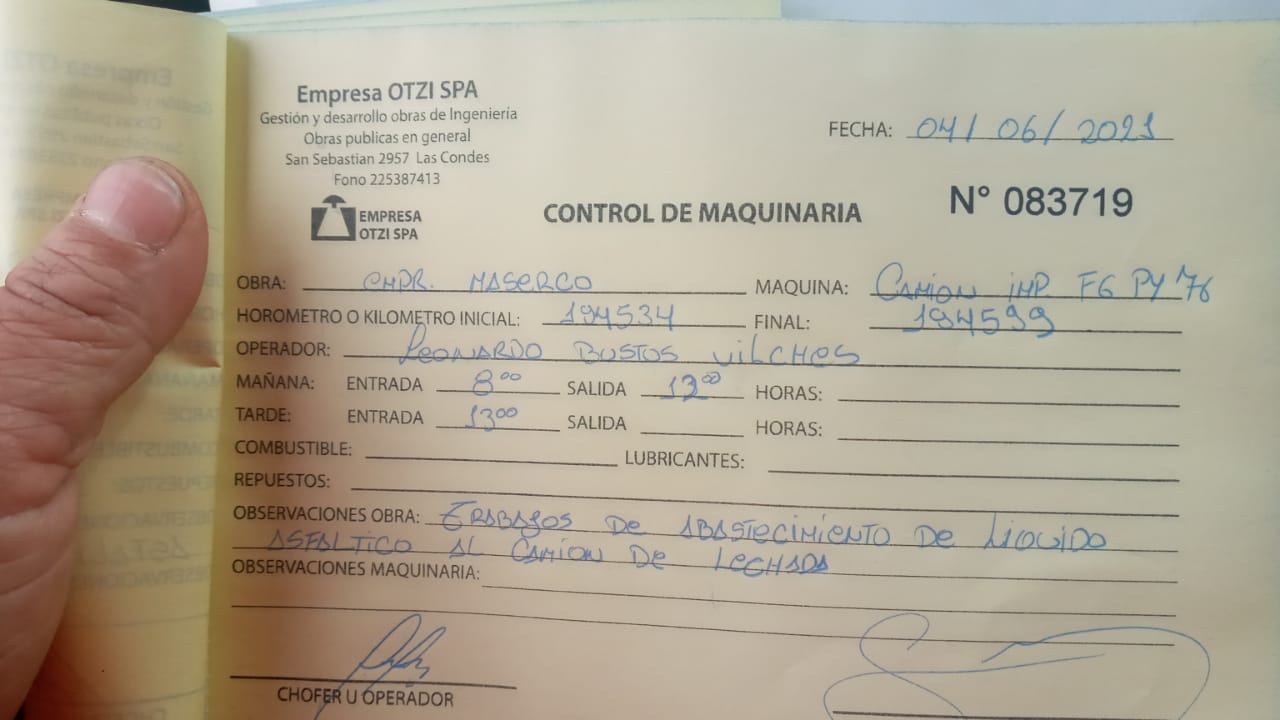 Empresa OTZI SPA
Gestión y desarrollo obras de Ingeniería
Obras publicas en general
San Sebastian 2957 Las Condes
Fono 225387413
EMPRESA
OTZI SPA
FECHA: 04/06/2021
CONTROL DE MAQUINARIA
N° 083719
OBRA: CMPR. MASERCO MAQUINA: CAMION IMP FG PY 76
HOROMETRO O KILOMETRO INICIAL: 194534 FINAL: 194599
OPERADOR: LEONARDO BUSTOS VILCHES
MAÑANA: ENTRADA 8:00 SALIDA 12:00 HORAS:
TARDE: ENTRADA 13:00 SALIDA HORAS:
COMBUSTIBLE: LUBRICANTES:
REPUESTOS:
OBSERVACIONES OBRA: TRABAJOS DE ABASTECIMIENTO DE LIQUIDO
ASFALTICO AL CAMION DE LECHADA
OBSERVACIONES MAQUINARIA:
CHOFER U OPERADOR